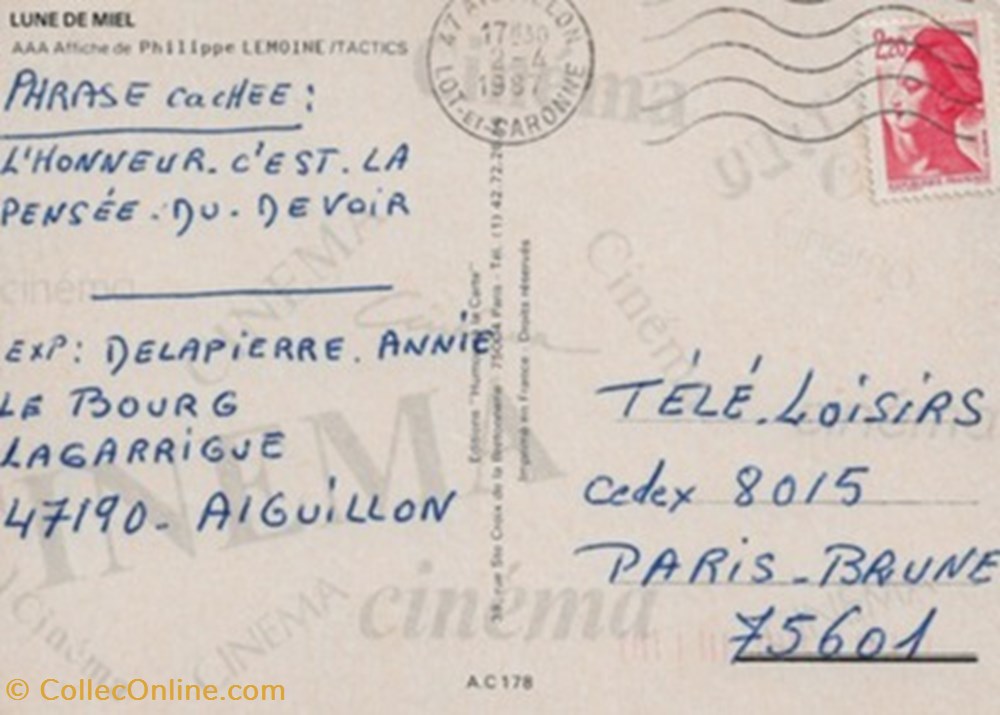 LUNE DE MIEL
AAA Affiche de Philippe LEMOINE/TACTICS
PHRASE CACHEE:
L'HONNEUR. C'EST. LA
PENSÉE. DU. DEVOIR
EXP: DELAPIERRE. ANNIE
LE BOURG
LAGARRIGUE
47190 - AIGUILLON
47 AIGUILLON
17H30
1987
LOT-ET-GARONNE
2,20
Editions "Humour à la Carte"
rue Ste Croix de la Bretonnerie 75004 Paris - Tél. (1) 42.72.
Imprimé en France - Droits réservés
TÉLÉ. LOISIRS
Cedex 8015
PARIS - BRUNE
75601
cinéma
CINEMA
cinéma
CINEMA
Cinéma
cinéma
Cinéma
CINEMA
cinéma
A.C 178
© CollecOnline.com